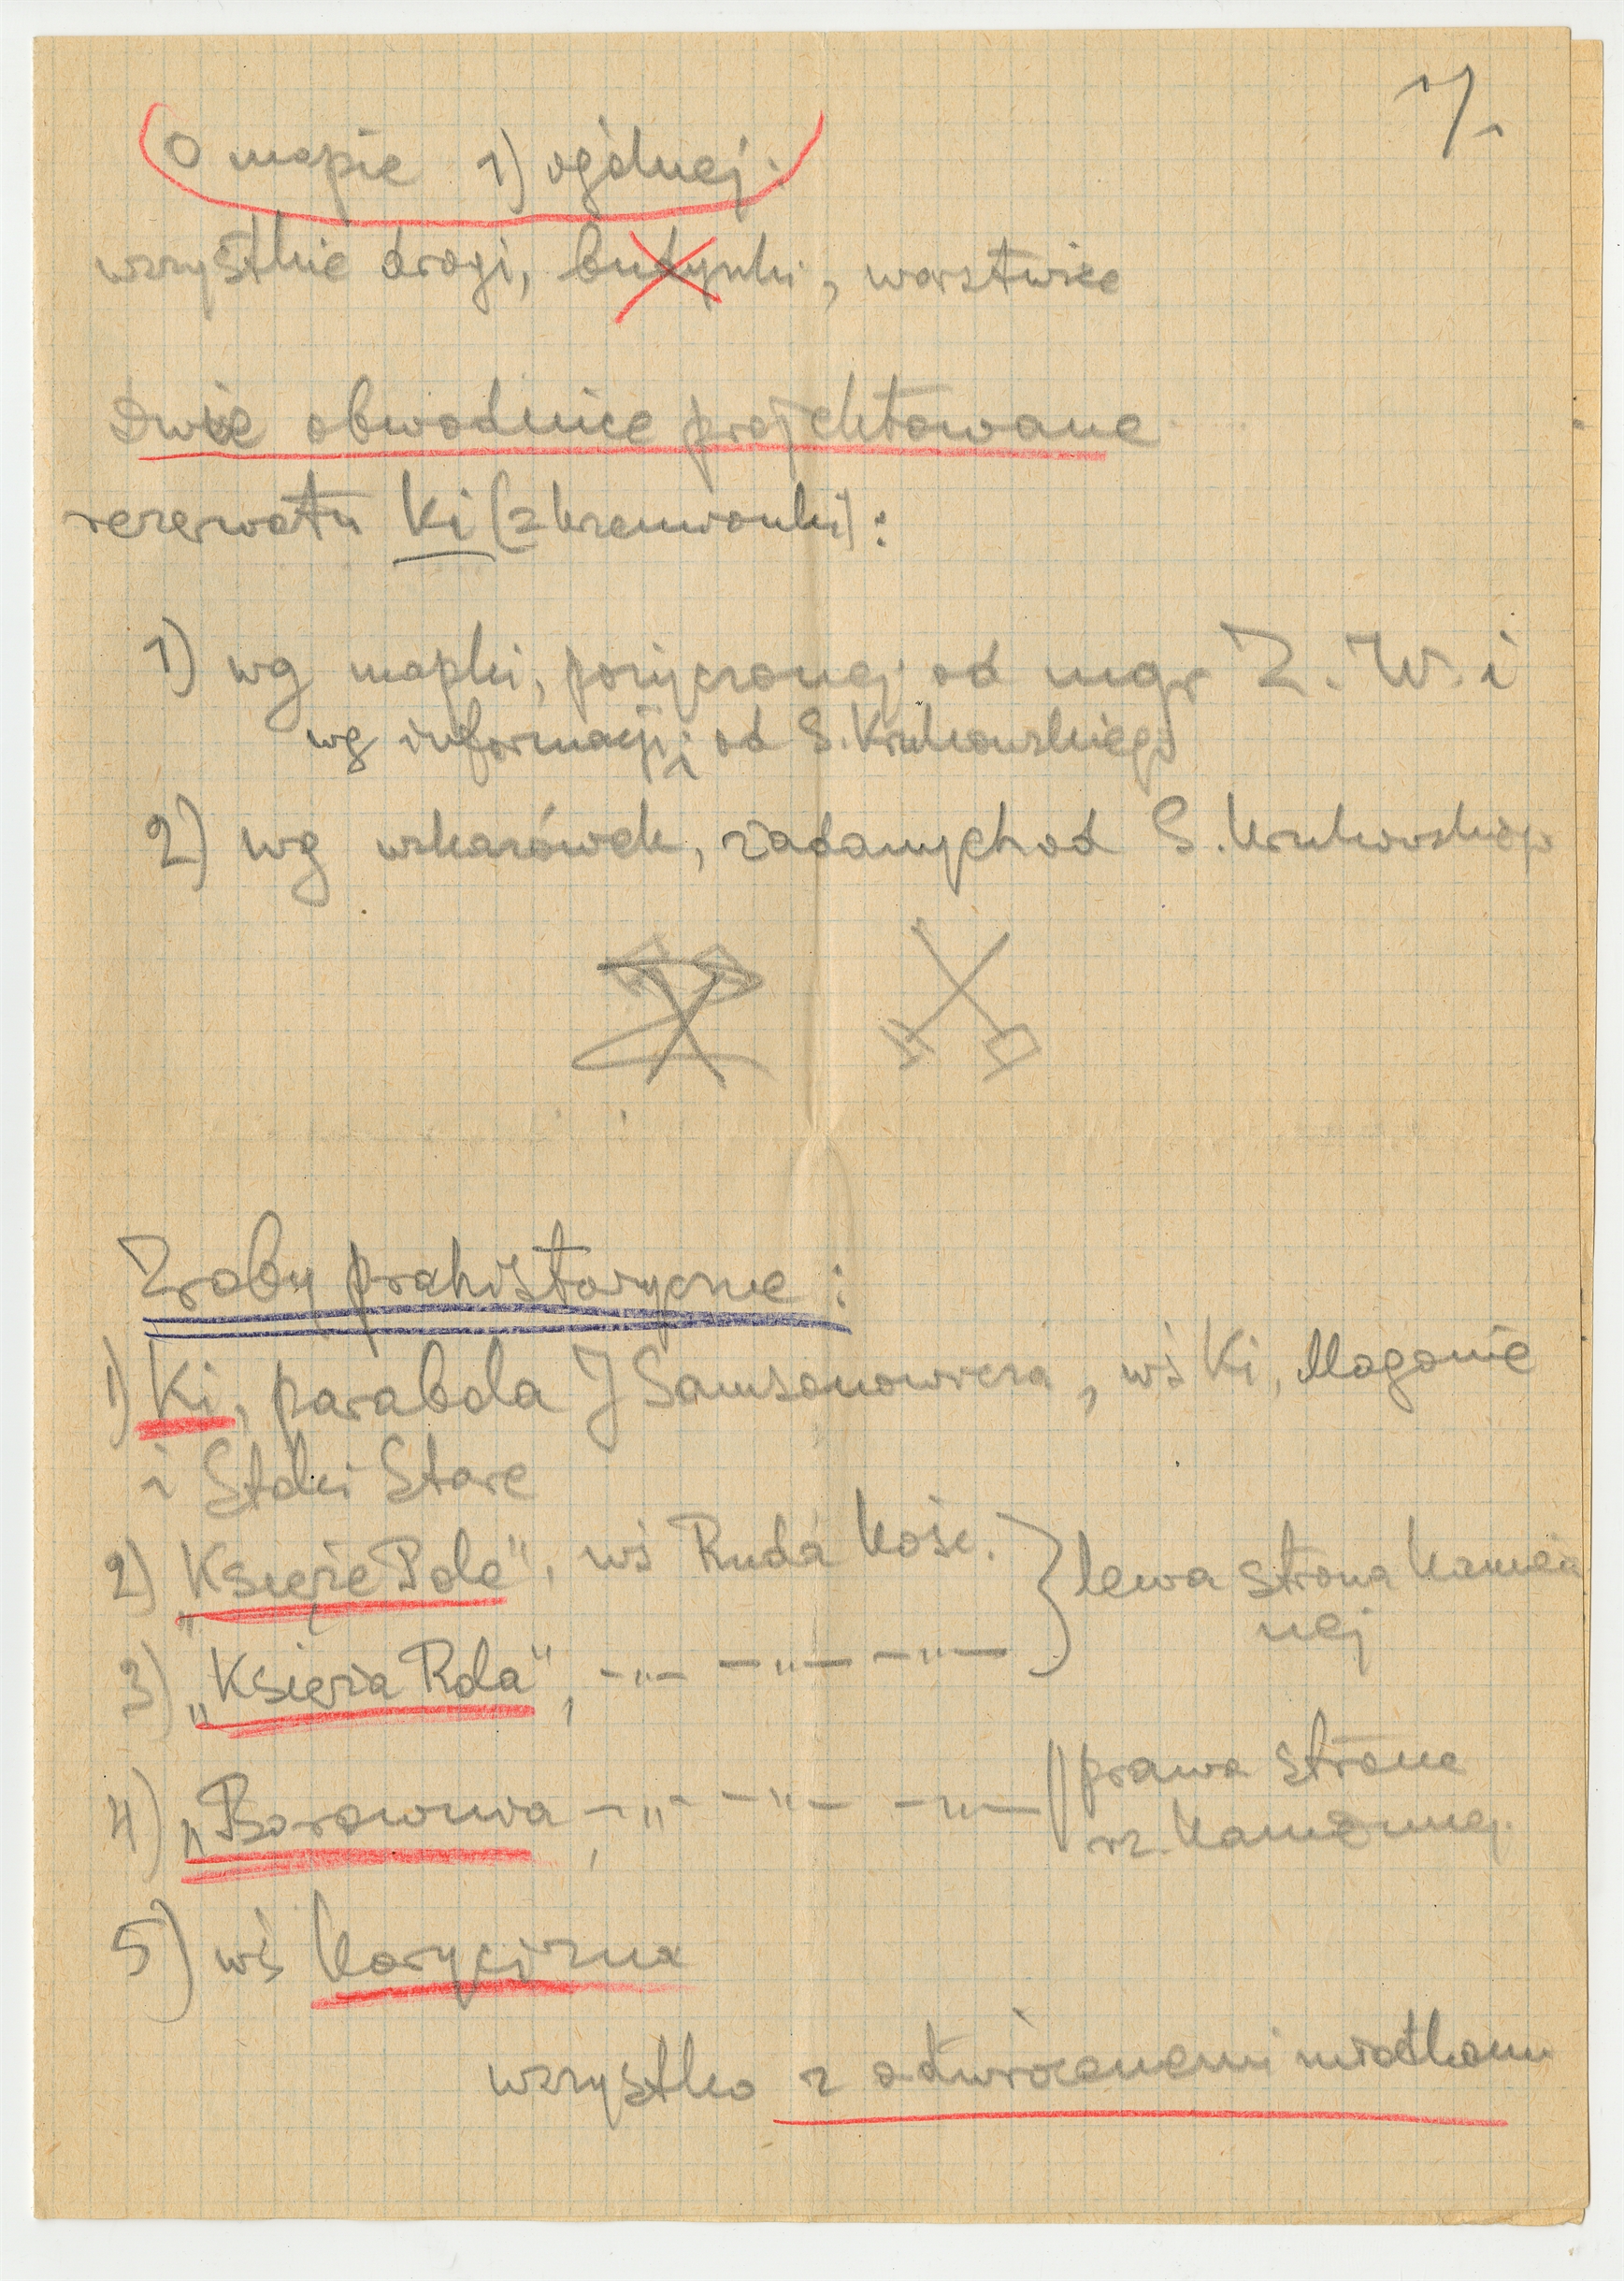 1/.
O mapie 1) ogólnej.
wszystkie drogi, budynki, warstwice
Dwie obwodnice projektowane
rezerwatu Ki (=krzemionki):
1) wg mapki, pożyczonej od mgr Z. W. i
wg informacji od S. Krukowskiego
2) wg wskazówek, zadanych od S. Krukowskiego
Zroby prahistoryczne:
1) Ki, parabola J Samsonowicza, wś Ki, Magonie
i Stoki Stare
2) "Księże Pole", wś Ruda Kośc. } lewa strona Kamien
nej
3) "Księża Rola", -"- -"- -"-
4) "Borownia, -"- -"- -"- || prawa strona
rz. Kamiennej.
5) wś Korycizna
wszystko z odwróconemi młotkami